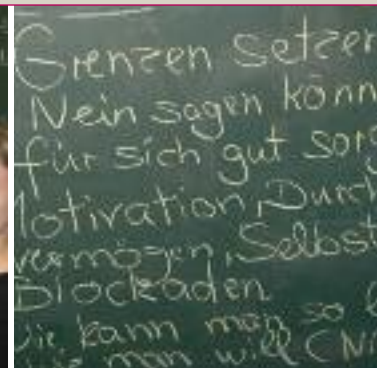 Grenzen setzen
Nein sagen könn
für sich gut sorg
Motivation, Durch
vermögen, Selbst
Blockaden
Wie kann man so l
man will (Ni